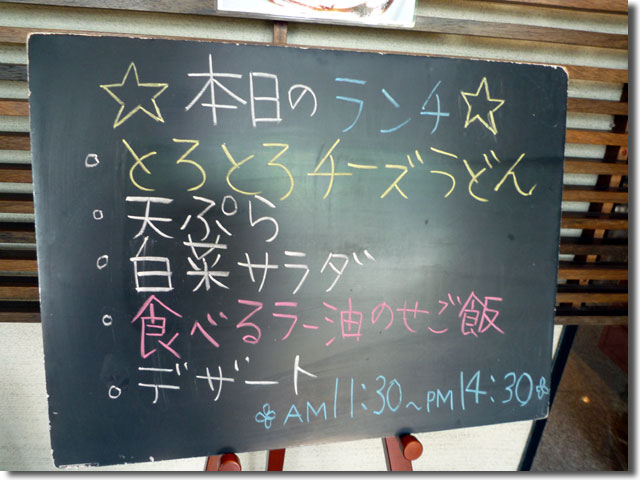 ☆ 本日の ランチ ☆
。とろとろチーズうどん
。天ぷら
。白菜サラダ
。食べるラー油のせご飯
。デザート
AM11:30～PM14:30